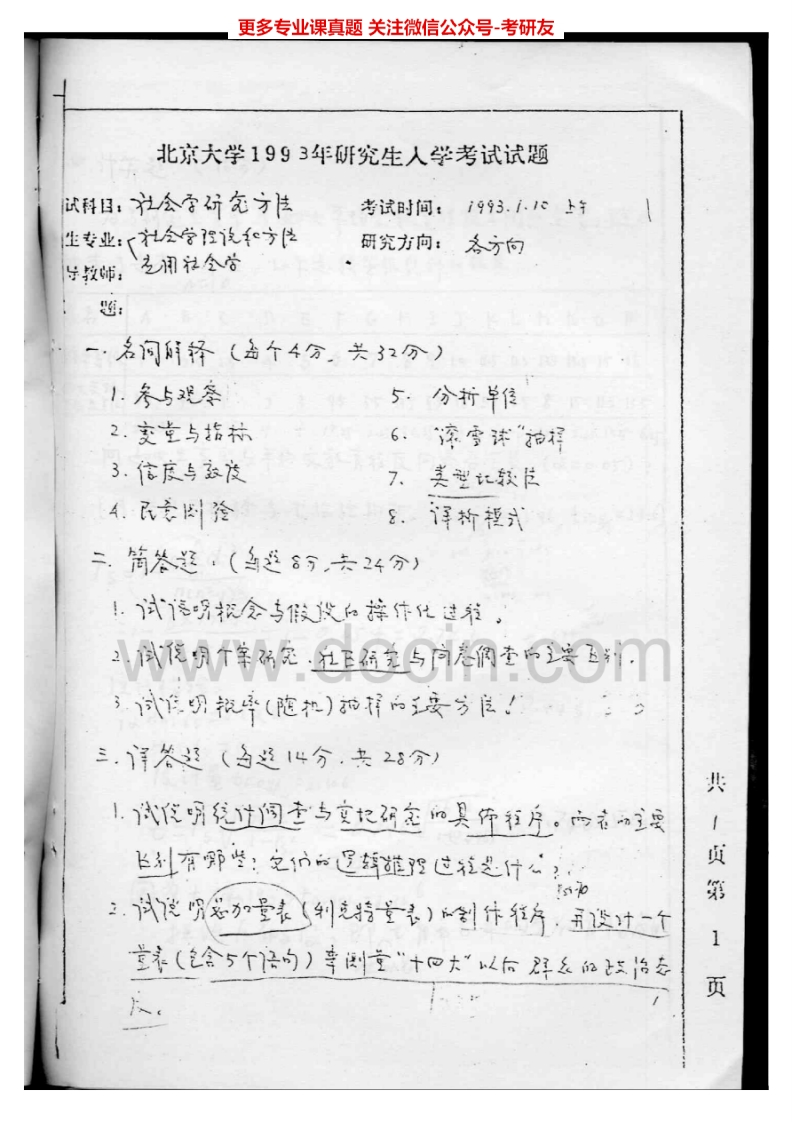 更多专业课真题 关注微信公众号-考研友
北京大学1993年研究生入学考试试题
试科目：社会学研究方法 考试时间：1993.1.10 上午
生专业：社会学理论和方法 研究方向：各方向
导教师： 应用社会学
题：
一. 名词解释（每个4分, 共32分）
1. 参与观察 5. 分析单位
2. 变量与指标 6. "滚雪球"抽样
3. 信度与效度 7. 类型比较法
4. 民意测验 8. 详析模式
二. 简答题：（每题8分, 共24分）
1. 试说明概念与假设的操作化过程。
2. 试说明个案研究、社区研究与问卷调查的主要区别.
3. 试说明概率(随机)抽样的主要方法！
三. 详答题（每题14分. 共28分）
1. 试说明统计调查与实地研究的具体程序。两者的主要
区别有哪些？它们的逻辑推理过程是什么？
2. 试说明总加量表（利克特量表）的制作程序, 并设计一个
量表（包含5个语句）来测量"十四大"以后群众的政治态
度。
共1页第1页
www.docin.com